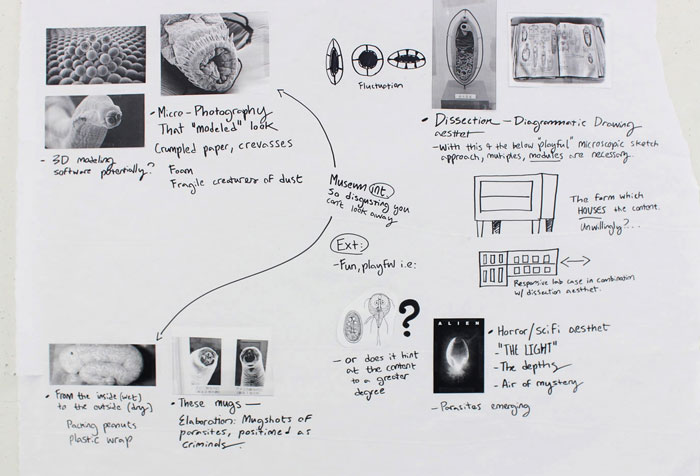 • Micro-Photography
That "modeled" look
Crumpled paper, crevasses
Foam
Fragile creatures of dust
- 3D modeling
software potentially?
Fluctuation
• Dissection - Diagrammatic Drawing
aesthet
- With this & the below "playful" microscopic sketch
approach, multiples, modules are necessary.
Museum int.
So disgusting you
can't look away
The form which
HOUSES the content.
Unwillingly?...
Ext:
- Fun, playful i.e:
Responsive lab case in combination
w/ dissection aesthet.
?
- or does it hint
at the content
to a greater
degree
ALIEN
• Horror/scifi aesthet
- "THE LIGHT"
- The depths
- Air of mystery
- Parasites emerging
• From the inside (wet)
to the outside (dry)
Packing peanuts
plastic wrap
• These mugs -
Elaboration: Mugshots of
parasites, positioned as
criminals